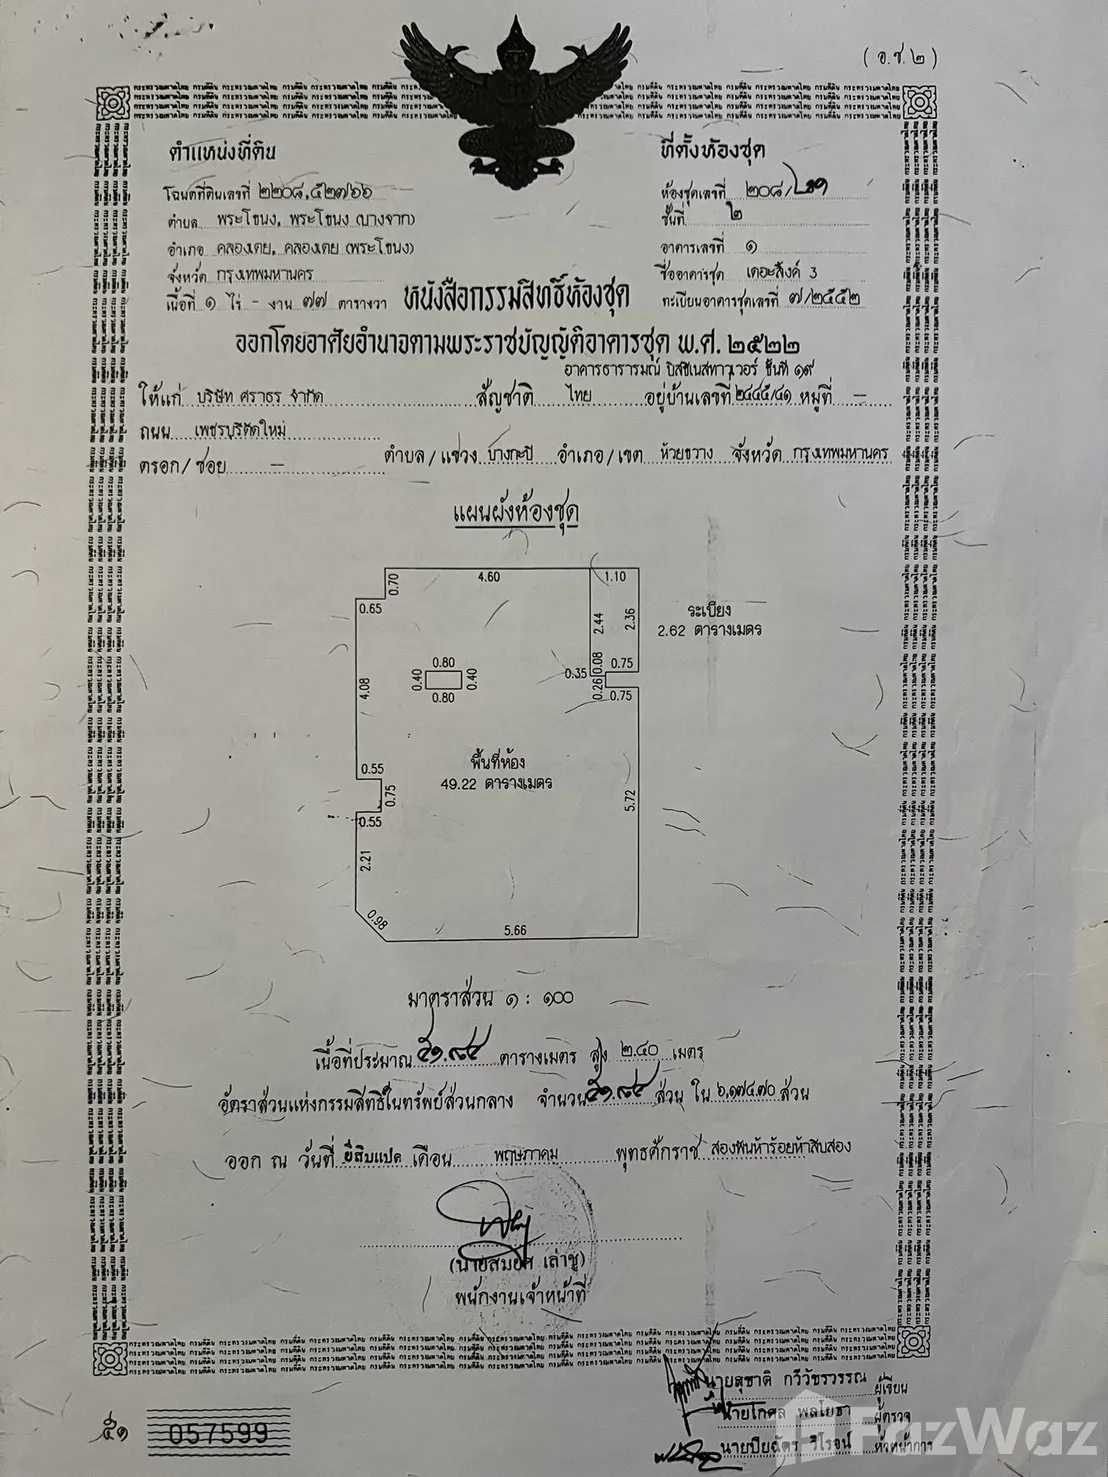 (อ.ช.๒)
ตำแหน่งที่ดิน
โฉนดที่ดินเลขที่ ๒๒๐๘,๕๒๗๖๖
ตำบล พระโขนง, พระโขนง (บางจาก)
อำเภอ คลองเตย, คลองเตย (พระโขนง)
จังหวัด กรุงเทพมหานคร
เนื้อที่ ๑ ไร่ - งาน ๗๗ ตารางวา
ที่ตั้งห้องชุด
ห้องชุดเลขที่ ๒๐๘/
ชั้นที่ ๒
อาคารเลขที่ ๑
ชื่ออาคารชุด เดอะลิงค์ 3
ทะเบียนอาคารชุดเลขที่ ๗/๒๕๕๒
หนังสือกรรมสิทธิ์ห้องชุด
ออกโดยอาศัยอำนาจตามพระราชบัญญัติอาคารชุด พ.ศ. ๒๕๒๒
อาคารธารารมณ์ บิสซิเนสทาวเวอร์ ชั้นที่ ๑๙
ให้แก่ บริษัท ศราธร จำกัด สัญชาติ ไทย อยู่บ้านเลขที่ ๒๔๔๕/๔๑ หมู่ที่ -
ถนน เพชรบุรีตัดใหม่
ตรอก/ซอย - ตำบล/แขวง บางกะปิ อำเภอ/เขต ห้วยขวาง จังหวัด กรุงเทพมหานคร
แผนผังห้องชุด
4.60
1.10
0.70
0.65
2.44
2.36
ระเบียง
2.62 ตารางเมตร
0.80
0.40
0.40
0.80
0.35
0.08
0.75
0.26
0.75
4.08
พื้นที่ห้อง
49.22 ตารางเมตร
0.55
0.75
0.55
5.72
2.21
0.98
5.66
มาตราส่วน ๑ : ๑๐๐
เนื้อที่ประมาณ ๕๑.๘๔ ตารางเมตร สูง ๒.๔๐ เมตร
อัตราส่วนแห่งกรรมสิทธิ์ในทรัพย์ส่วนกลาง จำนวน ๕๑.๘๔ ส่วน ใน ๖,๑๗๔.๗๐ ส่วน
ออก ณ วันที่ ยี่สิบแปด เดือน พฤษภาคม พุทธศักราช สองพันห้าร้อยห้าสิบสอง
(นายสมยศ เล่าชู)
พนักงานเจ้าหน้าที่
นายสุชาติ กวีวัชรวรรณ ผู้เขียน
นายโกศล พลโยธา ผู้ตรวจ
นายปิยฉัตร วิโรจน์ หัวหน้าการ
๕๑
057599
FazWaz